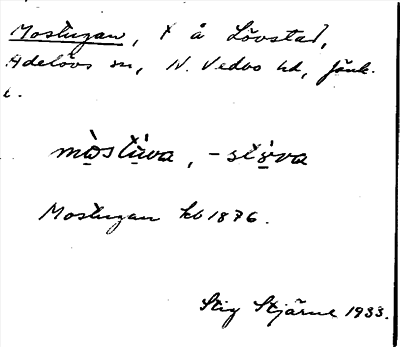 Mostugan, x å Lövstad,
Adelövs sn, N. Vedbo hd, Jönk.
l.
mòstu̇va, -stöva
Mostugan kb 1876.
Stig Stjärne 1933.